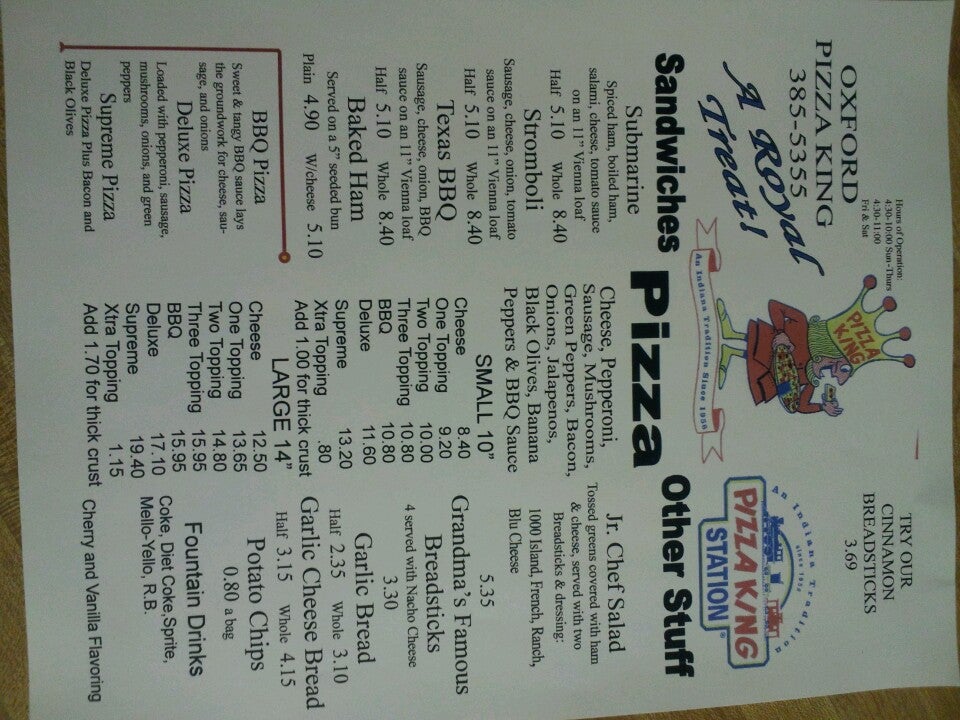 OXFORD
PIZZA KING
385-5355
A Royal
Treat!
Hours of Operation:
4:30-10:00 Sun-Thurs
4:30-11:00
Fri & Sat
PIZZA
KING
An Indiana Tradition Since 1956
TRY OUR
CINNAMON
BREADSTICKS
3.69
An Indiana Tradition
since 1956
PIZZA KING
STATION
Sandwiches
Submarine
Spiced ham, boiled ham,
salami, cheese, tomato sauce
on an 11" Vienna loaf
Half 5.10 Whole 8.40
Stromboli
Sausage, cheese, onion, tomato
sauce on an 11" Vienna loaf
Half 5.10 Whole 8.40
Texas BBQ
Sausage, cheese, onion, BBQ
sauce on an 11" Vienna loaf
Half 5.10 Whole 8.40
Baked Ham
Served on a 5" seeded bun
Plain 4.90 W/cheese 5.10
BBQ Pizza
Sweet & tangy BBQ sauce lays
the groundwork for cheese, sau-
sage, and onions
Deluxe Pizza
Loaded with pepperoni, sausage,
mushrooms, onions, and green
peppers
Supreme Pizza
Deluxe Pizza Plus Bacon and
Black Olives
Pizza
Cheese, Pepperoni,
Sausage, Mushrooms,
Green Peppers, Bacon,
Onions, Jalapenos,
Black Olives, Banana
Peppers & BBQ Sauce
SMALL 10"
Cheese 8.40
One Topping 9.20
Two Topping 10.00
Three Topping 10.80
BBQ 10.80
Deluxe 11.60
Supreme 13.20
Xtra Topping .80
Add 1.00 for thick crust
LARGE 14"
Cheese 12.50
One Topping 13.65
Two Topping 14.80
Three Topping 15.95
BBQ 15.95
Deluxe 17.10
Supreme 19.40
Xtra Topping 1.15
Add 1.70 for thick crust
Other Stuff
Jr. Chef Salad
Tossed greens covered with ham
& cheese, served with two
Breadsticks & dressing:
1000 Island, French, Ranch,
Blu Cheese
5.35
Grandma's Famous
Breadsticks
4 served with Nacho Cheese
3.30
Garlic Bread
Half 2.35 Whole 3.10
Garlic Cheese Bread
Half 3.15 Whole 4.15
Potato Chips
0.80 a bag
Fountain Drinks
Coke, Diet Coke,Sprite,
Mello-Yello, R.B.
Cherry and Vanilla Flavoring